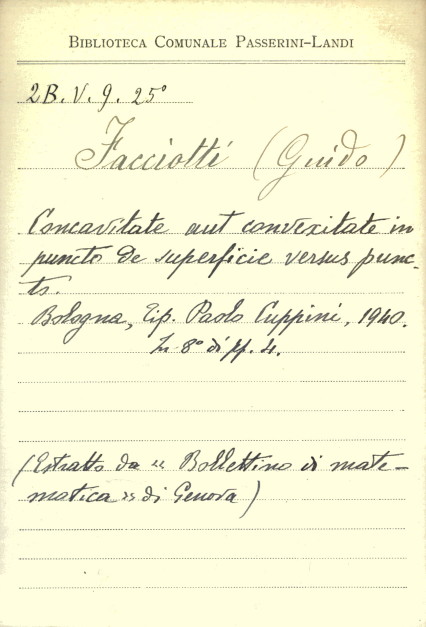 BIBLIOTECA COMUNALE PASSERINI-LANDI
2B. V. 9. 25°
Facciotti (Guido)
Concavitate aut convexitate in
puncto de superficie versus punc-
to.
Bologna, Tip. Paolo Cuppini, 1940.
In 8° di pp. 4.
(Estratto da « Bollettino di mate-
matica » di Genova)